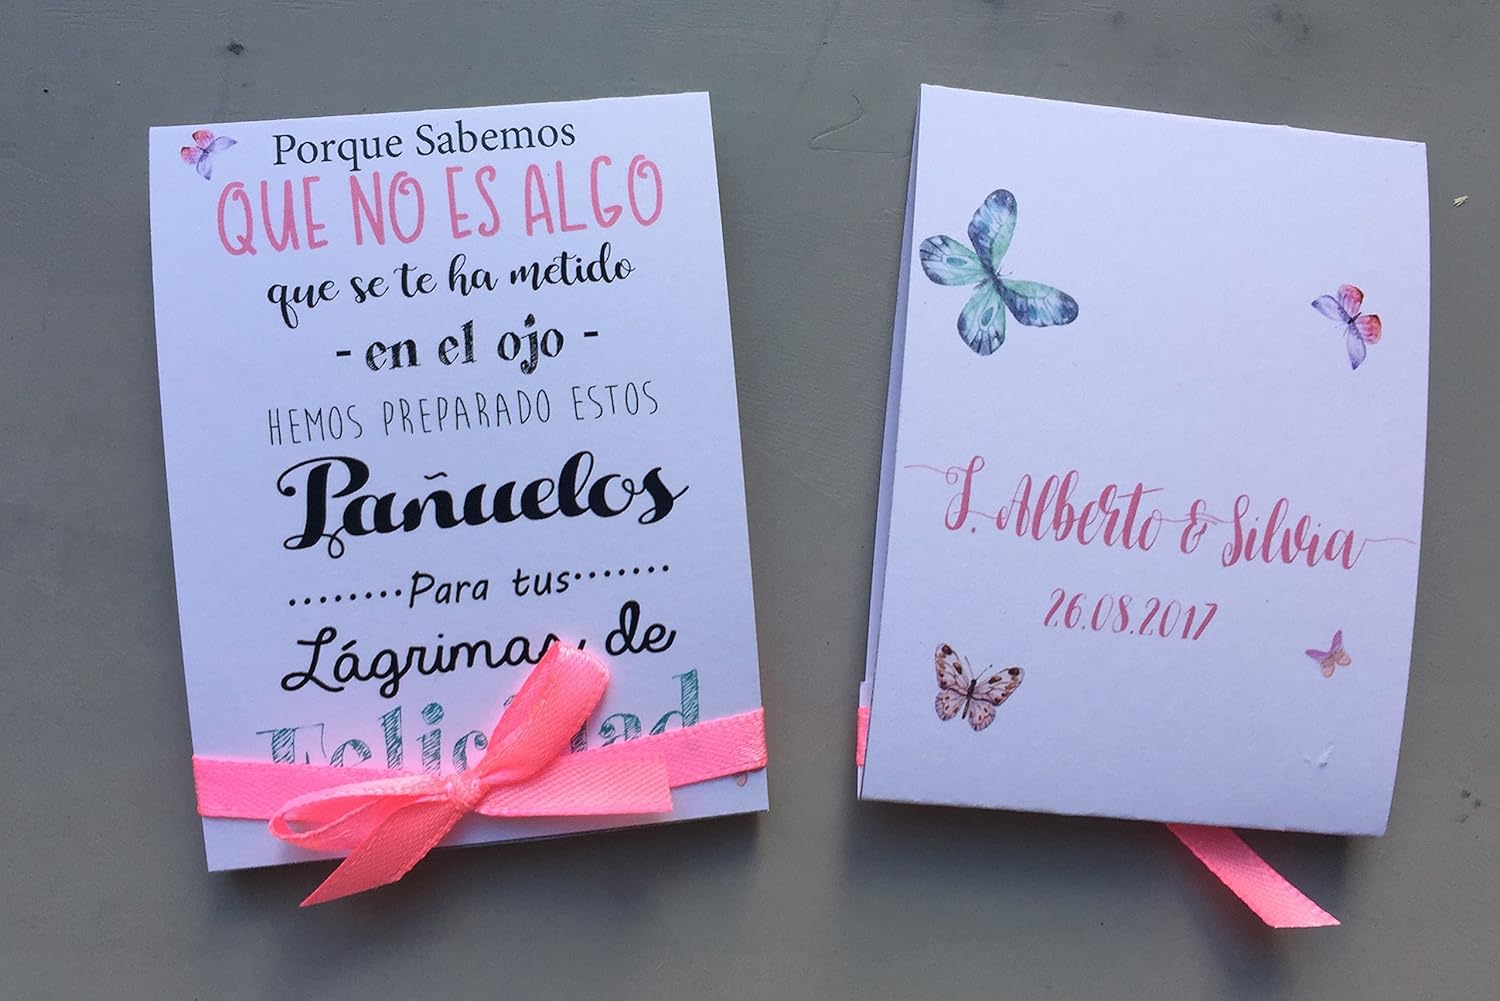 Porque Sabemos
QUE NO ES ALGO
que se te ha metido
- en el ojo -
HEMOS PREPARADO ESTOS
Pañuelos
........Para tus.......
Lágrimas de
Felicidad
J. Alberto & Silvia
26.08.2017